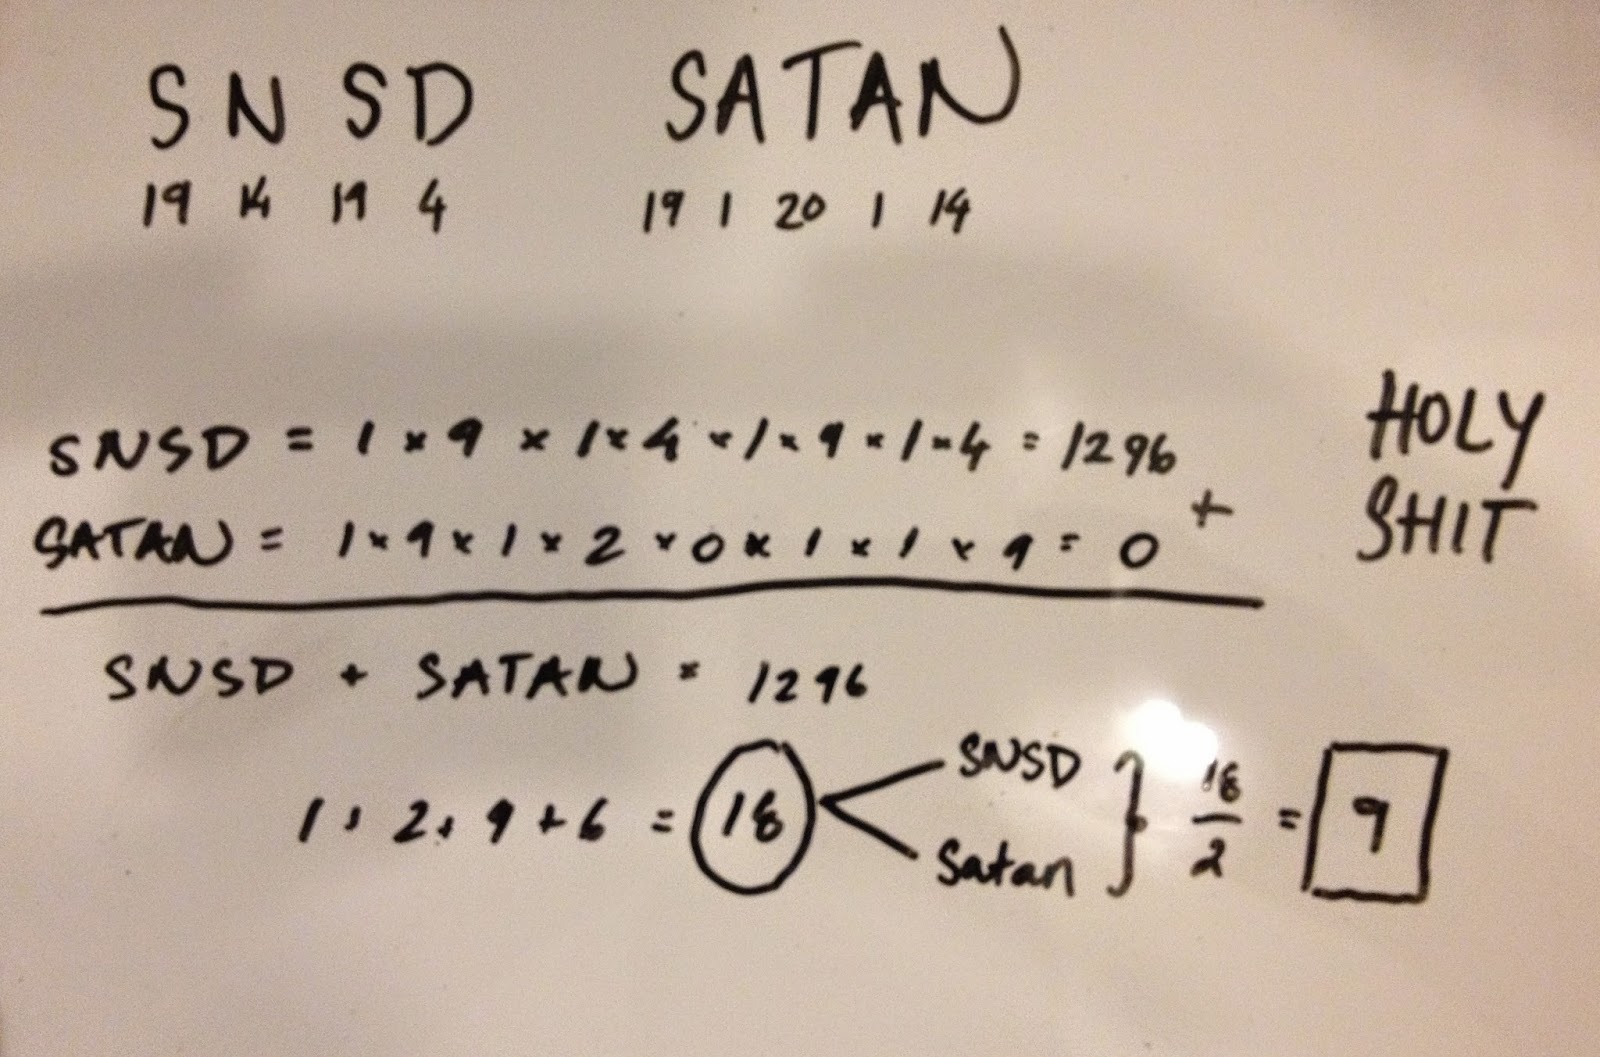 SNSD SATAN
19 14 19 4 19 1 20 1 14
SNSD = 1 × 9 × 1 × 4 × 1 × 9 × 1 × 4 = 1296
+
SATAN = 1 × 9 × 1 × 2 × 0 × 1 × 1 × 9 = 0
HOLY
SHIT
SNSD + SATAN = 1296
1 + 2 + 9 + 6 = 18 < SNSD Satan } 18/2 = 9